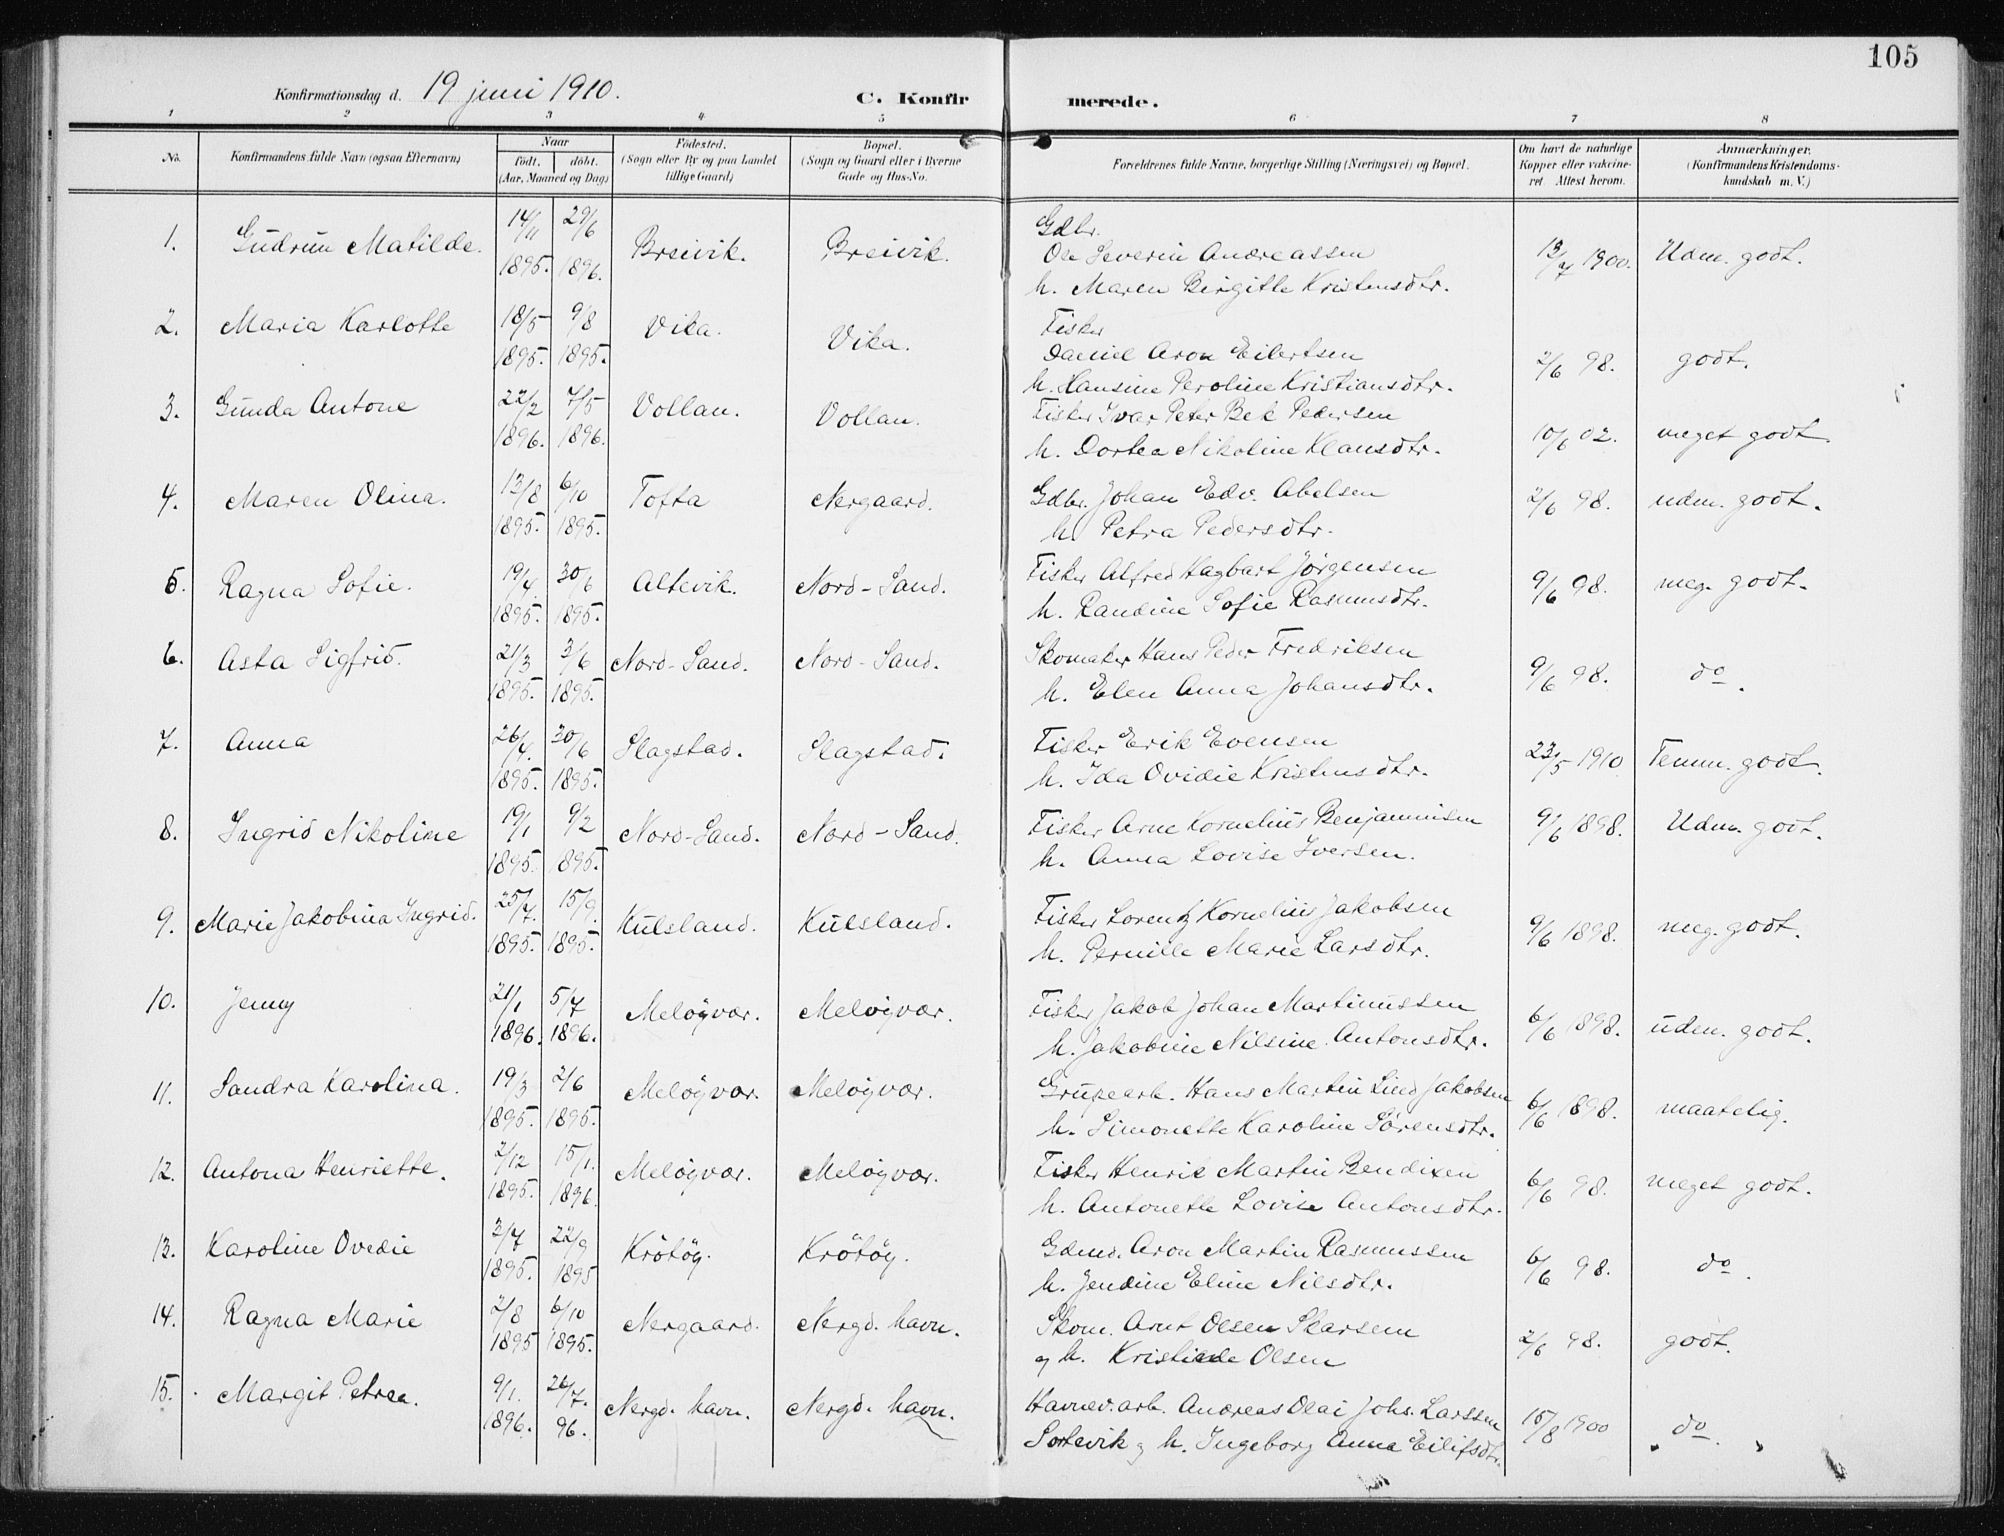 105
Konfirmationsdag d. 19 juni 1910. C. Konfirmerede.
1 2 3 4 5 6 7 8
No. Konfirmandens fulde Navn (ogsaa Efternavn) Naar født. døbt. (Aar, Maaned og Dag) Fødested. (Sogn eller By og paa Landet tillige Gaard) Bopæl. (Sogn og Gaard eller i Byerne Gade og Hus-No. Forældrenes fulde Navne, borgerlige Stilling (Næringsvei) og Bopæl. Om havt de naturlige Kopper eller vakcineret Attest herom. Anmærkninger. (Konfirmandens Kristendomskundskab m. V.)
1. Gudrun Matilde. 14/11 1895. 29/6 1896. Breivik. Breivik. Gdbr. Ole Severin Andreassen h. Maren Birgitte Kristensdtr. 13/7 1900. Udm. godt.
2. Maria Karlotte 18/5 1895. 9/8 1895. Vika. Vika. Fisker Daniel Aron Eilertsen h. Hansine Peroline Kristiansdtr. 2/6 98. godt.
3. Gunda Antone 22/2 1896. 7/5 1896. Vollan. Vollan. Fisker Ivar Peter Bek Pedersen h. Dortea Nikoline Klausdtr. 10/6 02. meget godt.
4. Maren Olina. 13/8 1895. 6/10 1895. Tofta Nergaard. Gdbr. Johan Edv. Abelsen h. Petra Pedersdtr. 2/6 98. udm. godt.
5. Ragna Sofie. 19/4 1895. 30/6 1895. Altevik. Nord-Sand. Fisker Alfred Hagbart Jørgensen h. Randine Sofie Rasmusdtr. 9/6 98. meg. godt.
6. Asta Sigfrid. 21/3 1895. 3/6 1895. Nord-Sand. Nord-Sand. Skomaker Hans Peder Fredriksen h. Elen Anna Johansdtr. 9/6 98. do.
7. Anna 26/4 1895. 30/6 1895. Slagstad. Slagstad. Fisker Erik Evensen h. Ida Ovidie Kristensdtr. 23/5 1910 Temm. godt.
8. Ingrid Nikoline 19/1 1895. 9/2 895. Nord-Sand. Nord-Sand. Fisker Arne Kornelius Benjaminsen h. Anna Lovise Iversen. 9/6 1898. Udm. godt.
9. Marie Jakobina Ingrid. 25/7 1895. 15/9. 1895. Kulsland. Kulsland. Fisker Lorentz Kornelius Jakobsen h. Pernille Marie Larsdtr. 9/6 1898. meg. godt.
10. Jenny 21/1 1896. 5/7 1896. Meløyvær. Meløyvær. Fisker Jakob Johan Martinussen h. Jakobine Nilsine Antonsdtr. 6/6 1898. udm. godt.
11. Sandra Karolina. 19/3 1895. 2/6 1895. Meløyvær. Meløyvær. Grubearb. Hans Martin Lind Jakobsen h. Simonette Karoline Sørensdtr. 6/6 1898. maatelig.
12. Antona Henriette. 2/12 1895. 15/1. 1896. Meløyvær. Meløyvær. Fisker Henrik Martin Bendixen h. Antonette Lovise Antonsdtr. 6/6 98. meget godt.
13. Karoline Ovedie 3/7 1895. 22/9 1895 Krøtøy. Krøtøy. Gdmd. Aron Martin Rasmussen h. Jendine Eline Nilsdtr. 6/6 98. do.
14. Ragna Marie 2/8 1895 6/10 1895. Nergaard. Nergd. havn. Skom. Arnt Olsen Skarsem og h. Kristiede Olsen 2/6 98. godt.
15. Margit Petrea. 9/1. 1896. 26/7. 96. Nergd. havn. Nergd. havn. Havnev.arb. Andreas Olai Johs. Larssen Sortevik og h. Ingeborg Anna Eilifsdtr. 15/8 1900 do.